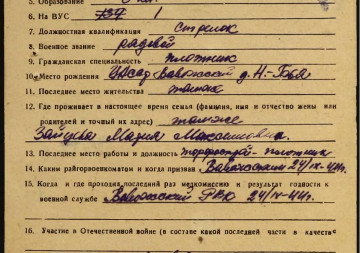 5. Образование
6. На ВУС 134 1
7. Должностная квалификация стрелок
8. Военное звание рядовой
9. Гражданская специальность плотник
10. Место рождения УАССР Вавожский д. Н-Бья
11. Последнее место жительства
12. Где проживает в настоящее время семья (фамилия, имя и отчество жены или
родителей и точный их адрес) там же
Зайцева Мария Максимовна.
13. Последнее место работы и должность плотник
14. Каким райгорвоенкоматом и когда призван Вавожский 24/IX-44г.
15. Когда и где проходил последний раз медкомиссию и результат годности к
военной службе Вавожский РВК 24/IX-44г.
16. Участие в Отечественной войне (в составе какой последней части в качестве